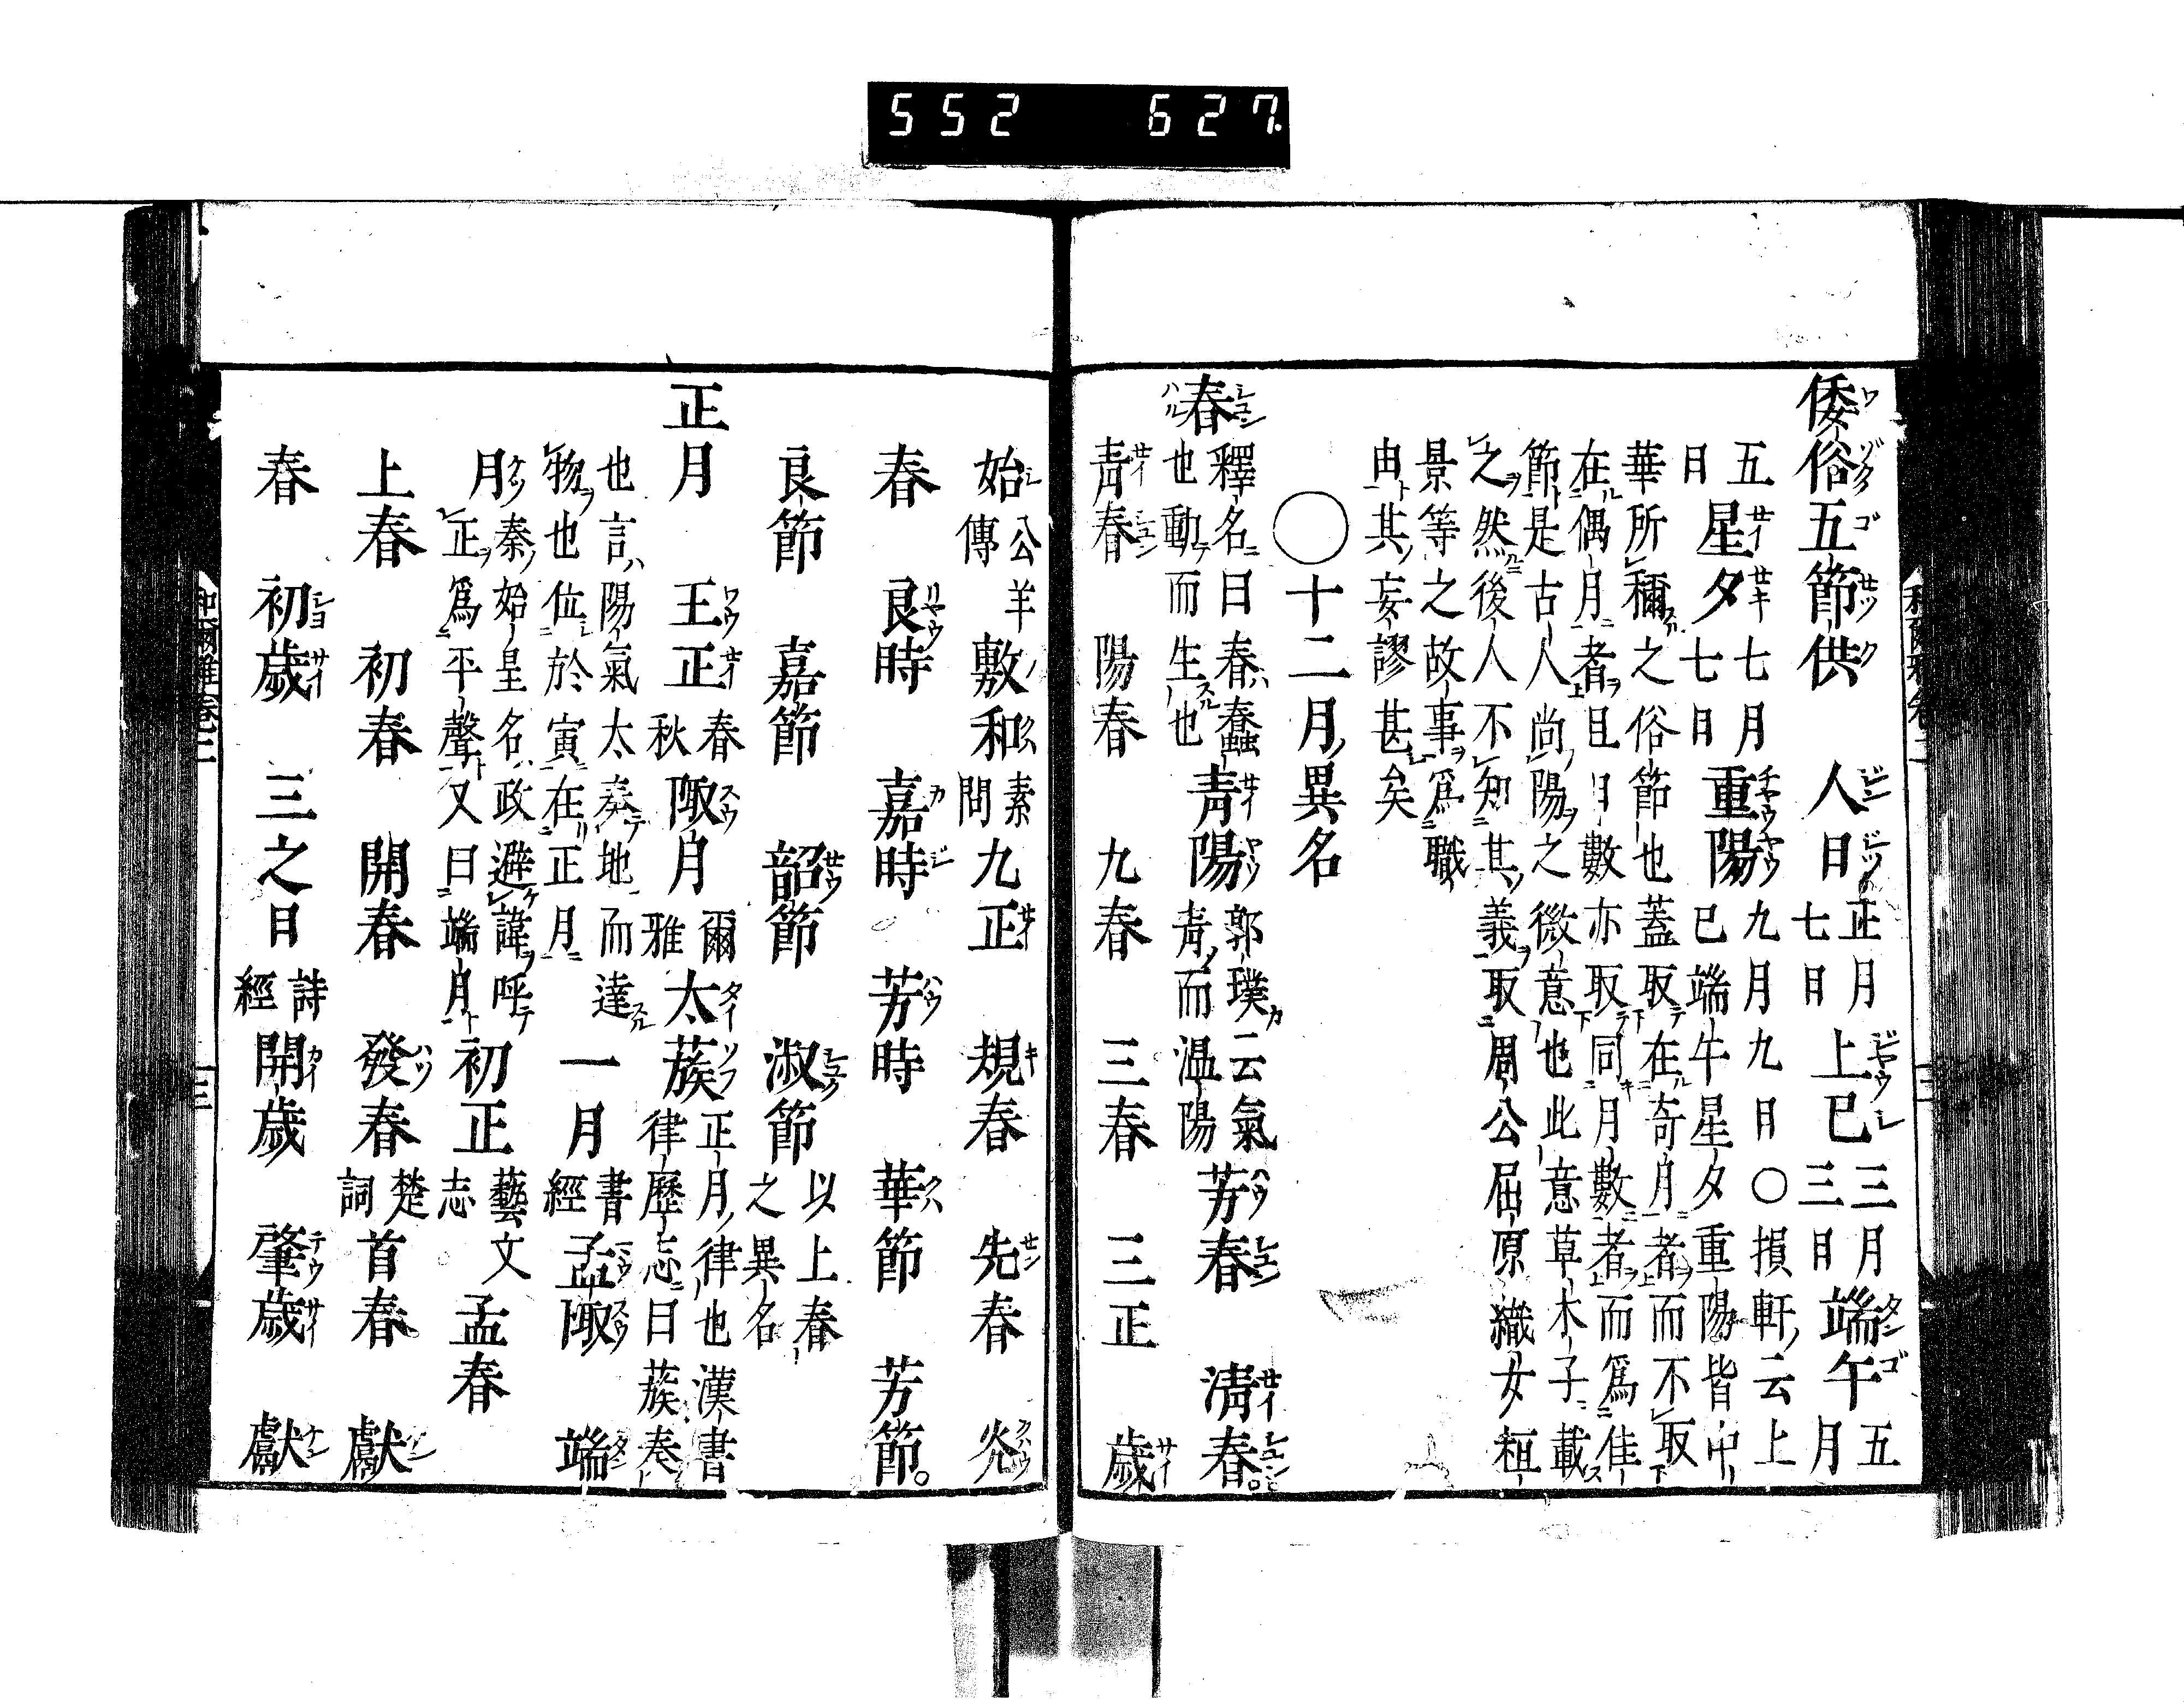 552 627
倭俗五節供 人日 正月七日 上巳 三月三日 端午 五月
五日 星夕 七月七日 重陽 九月九日 〇損軒云上
巳端午星夕重陽皆中
華所稱之俗節也蓋取在奇月者而不取
在偶月者且日數亦取同月數者而爲佳
節是古人尚陽之微意也此意草木子載
之然後人不知其義取周公屈原織女桓
景等之故事爲職
由其妄謬甚矣
〇十二月異名
春 釋名曰春蠢也動而生也 青陽 郭璞云氣青而温陽 芳春 清春
青春 陽春 九春 三春 三正 歳
始 公羊傳 敷和 素問 九正 規春 先春 炎
春 良時 嘉時 芳時 華節 芳節
良節 嘉節 韶節 淑節 以上春之異名
正月 王正 春秋 陬月 爾雅 太蔟 正月律也漢書律歷志曰蔟奏
也言陽氣太奏地而達物也位於寅在正月 一月 書經 孟陬 端
月 秦始皇名政避諱呼正爲平聲又曰端月 初正 藝文志 孟春
上春 初春 開春 發春 楚詞 首春 獻
春 初歳 三之日 詩經 開歳 肇歳 獻